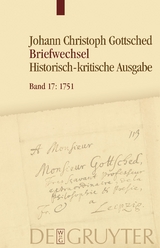 Johann Christoph Gottsched
Briefwechsel
Historisch-kritische Ausgabe
Band 17: 1751
A Monsieur
Monsieur Gottsched,
Professeur
de
Philosophie & Poesie,
à
Leipzig.
DE GRUYTER